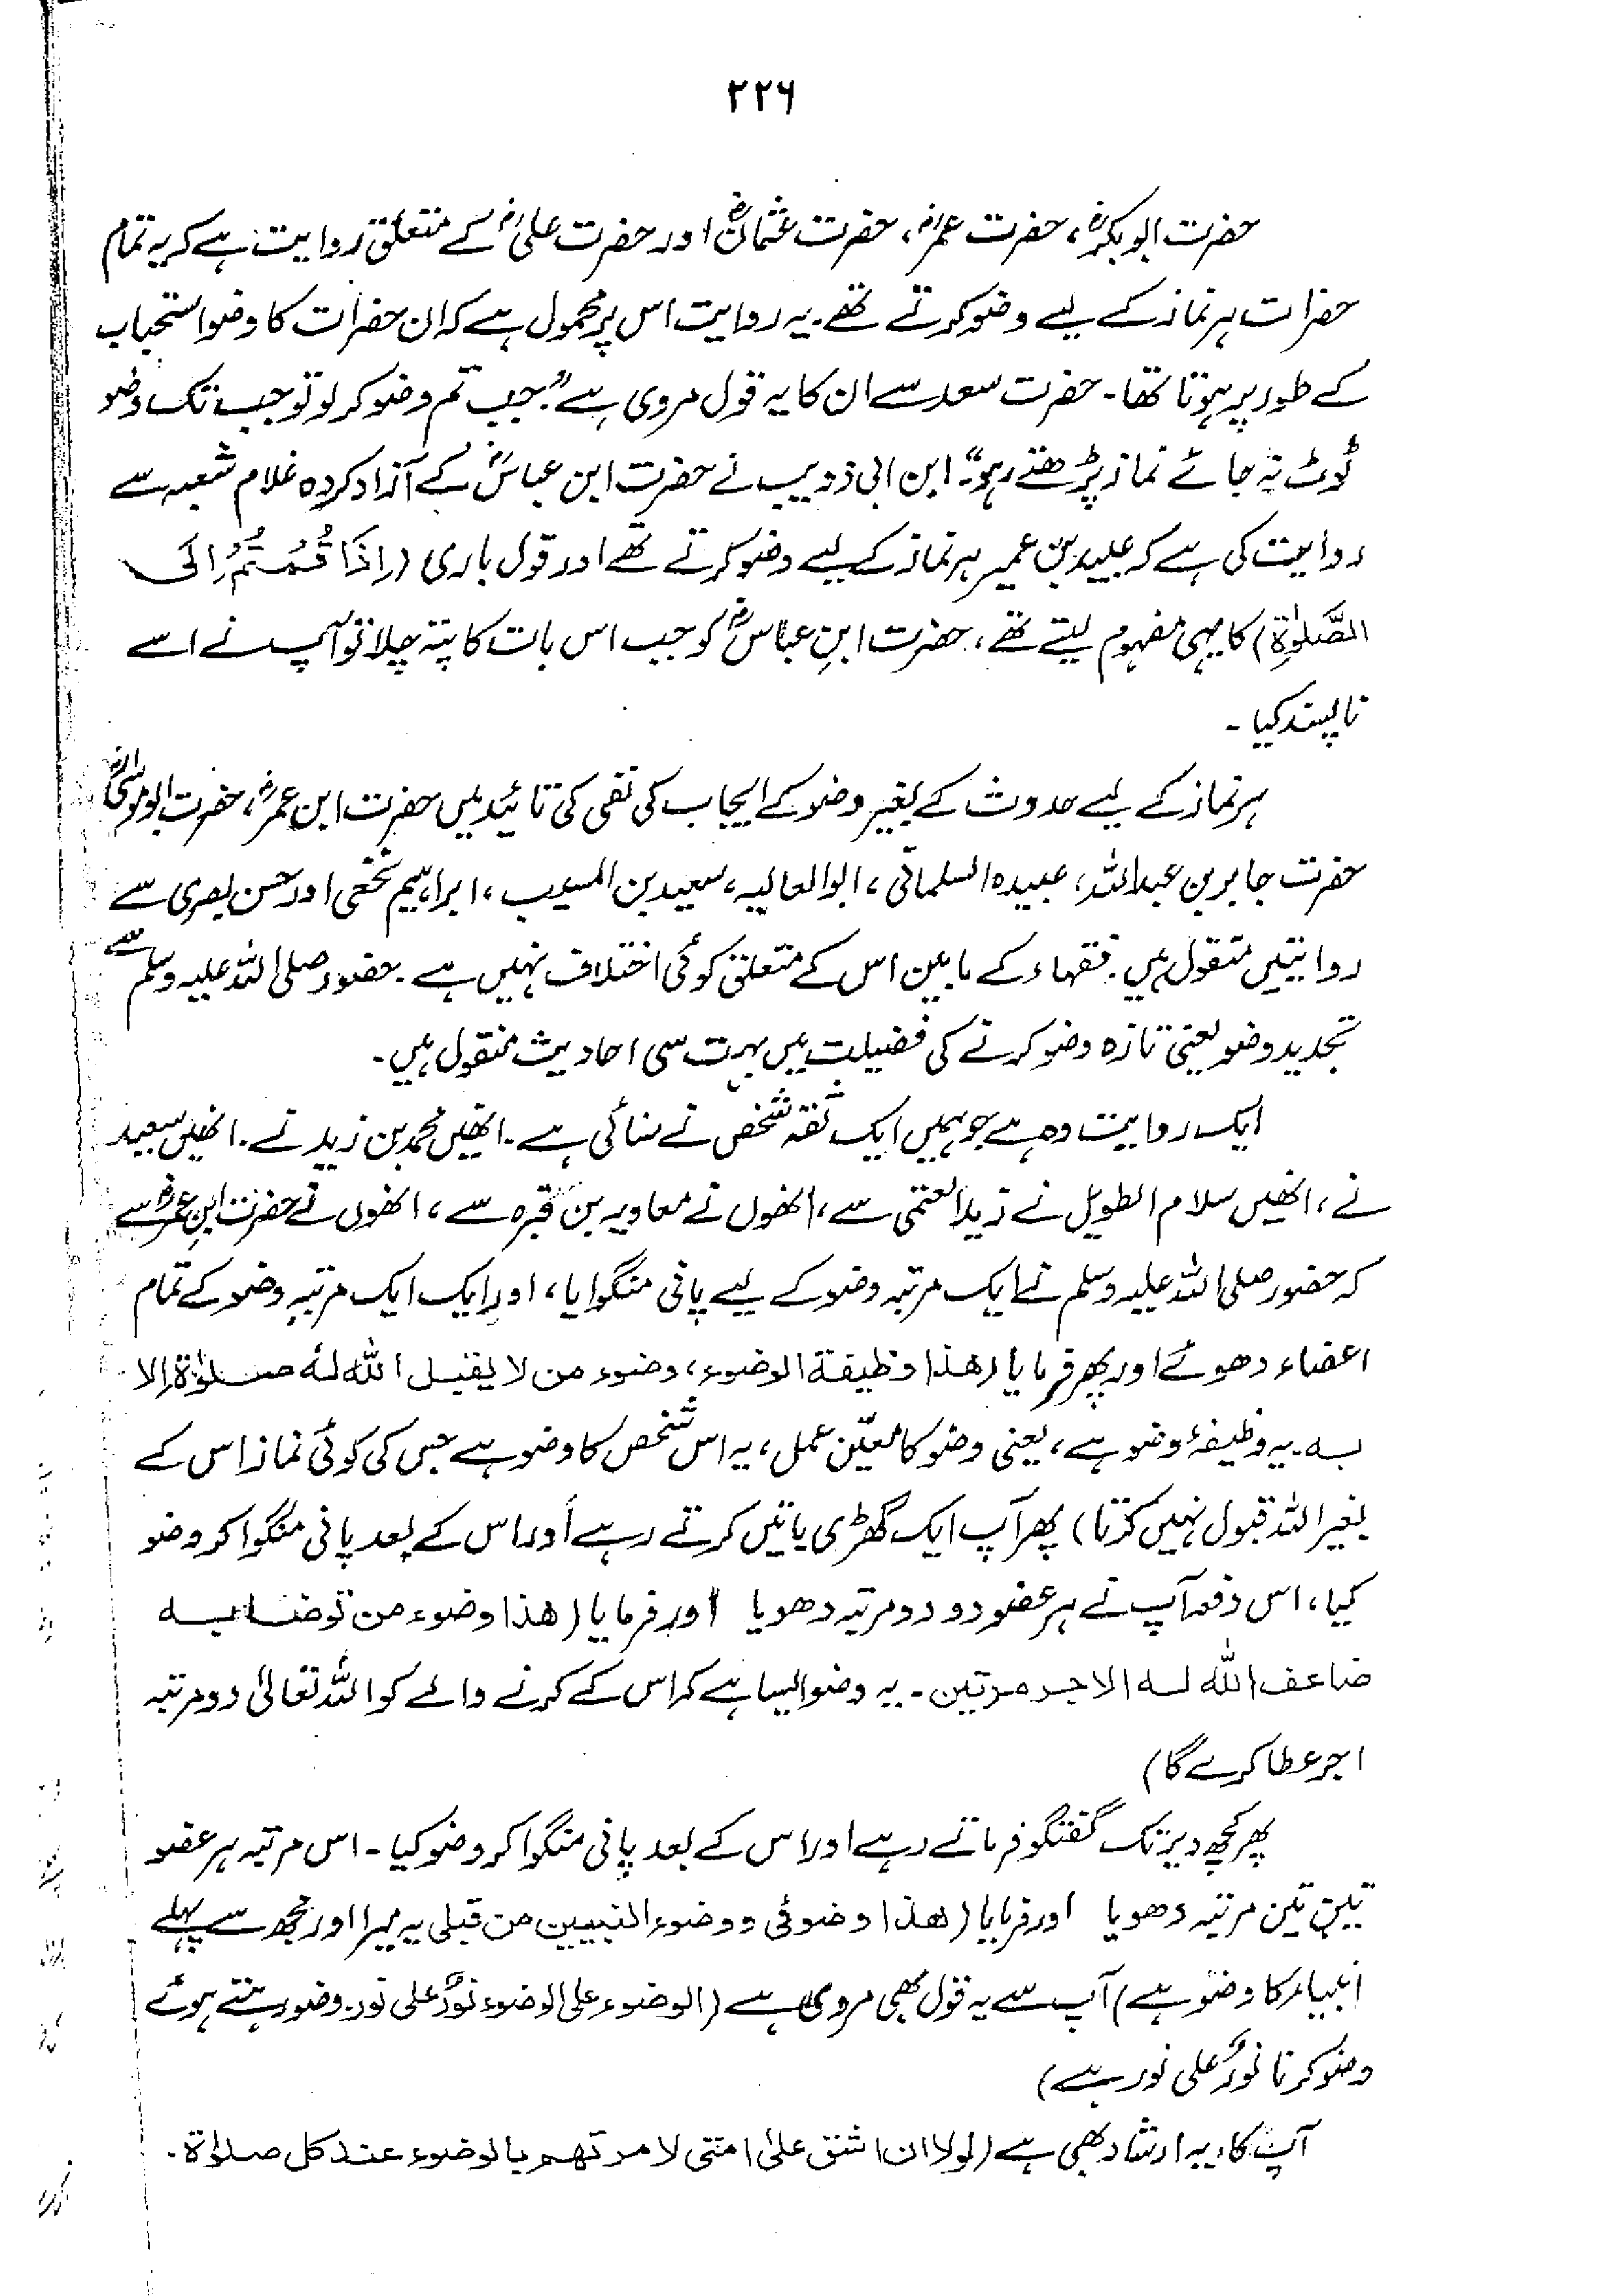 ۲۲۶
حضرت ابوبکرؓ، حضرت عمرؓ، حضرت عثمانؓ اور حضرت علیؓ کے متعلق روایت ہے کہ یہ تمام
حضرات ہر نماز کے لیے وضو کرتے تھے۔ یہ روایت اس پر محمول ہے کہ ان حضرات کا وضو استحباب
کے طور پر ہوتا تھا۔ حضرت سعد سے ان کا یہ قول مروی ہے "جب تم وضو کر لو تو جب تک وضو
ٹوٹ نہ جائے نماز پڑھتے رہو"۔ ابن ابی ذویب نے حضرت ابن عباسؓ کے آزاد کردہ غلام شعبہ سے
روایت کی ہے کہ عبید بن عمیر ہر نماز کے لیے وضو کرتے تھے اور قول باری (اِذَا قُمْتُمْ اِلَی
الصَّلوٰۃِ) کا یہی مفہوم لیتے تھے، حضرت ابنِ عباسؓ کو جب اس بات کا پتہ چلا تو آپ نے اسے
ناپسند کیا۔
ہر نماز کے لیے حدوث کے بغیر وضو کے ایجاب کی نفی کی تائید میں حضرت ابن عمرؓ، حضرت ابو موسیٰؓ
حضرت جابر بن عبداللہ، عبیدہ السلمانی، ابوالعالیہ، سعید بن المسیب، ابراہیم نخعی اور حسن بصری سے
روایتیں منقول ہیں۔ فقہاء کے مابین اس کے متعلق کوئی اختلاف نہیں ہے۔ حضور صلی اللہ علیہ وسلم سے
تجدید وضو یعنی تازہ وضو کرنے کی فضیلت میں بہت سی احادیث منقول ہیں۔
ایک روایت وہ ہے جو ہمیں ایک ثقہ شخص نے سنائی ہے۔ انھیں محمد بن زید نے۔ انھیں سعید
نے، انھیں سلام الطویل نے زید العتمی سے، انھوں نے معاویہ بن قرہ سے، انھوں نے حضرت ابنِ عمرؓ سے
کہ حضور صلی اللہ علیہ وسلم نے ایک مرتبہ وضو کے لیے پانی منگوایا، اور ایک ایک مرتبہ وضو کے تمام
اعضاء دھوئے اور پھر فرمایا (ھذا وظیفۃ الوضوء، وضوء من لا یقبل اللہ لہ صلوٰۃ الا
بہ۔ یہ وظیفۂ وضو ہے، یعنی وضو کا معیّن عمل، یہ اس شخص کا وضو ہے جس کی کوئی نماز اس کے
بغیر اللہ قبول نہیں کرتا) پھر آپ ایک گھڑی باتیں کرتے رہے اور اس کے بعد پانی منگوا کر وضو
کیا، اس دفعہ آپ نے ہر عضو دو دو مرتبہ دھویا اور فرمایا (ھذا وضوء من توضا بہ
ضاعف اللہ لہ الاجر مرتین۔ یہ وضو ایسا ہے کہ اس کے کرنے والے کو اللہ تعالیٰ دو مرتبہ
اجر عطا کرے گا)
پھر کچھ دیر تک گفتگو فرماتے رہے اور اس کے بعد پانی منگوا کر وضو کیا۔ اس مرتبہ ہر عضو
تین تین مرتبہ دھویا اور فرمایا (ھذا وضوئی ووضوء النبیین من قبلی یہ میرا اور مجھ سے پہلے
انبیاء کا وضو ہے) آپ سے یہ قول بھی مروی ہے (الوضوء علی الوضوء نورٌ علی نور۔ وضو رہتے ہوئے
وضو کرنا نورٌ علی نور ہے)
آپ کا یہ ارشاد بھی ہے (لولا ان اشق علیٰ امتی لامرتھم بالوضوء عند کل صلاۃ۔